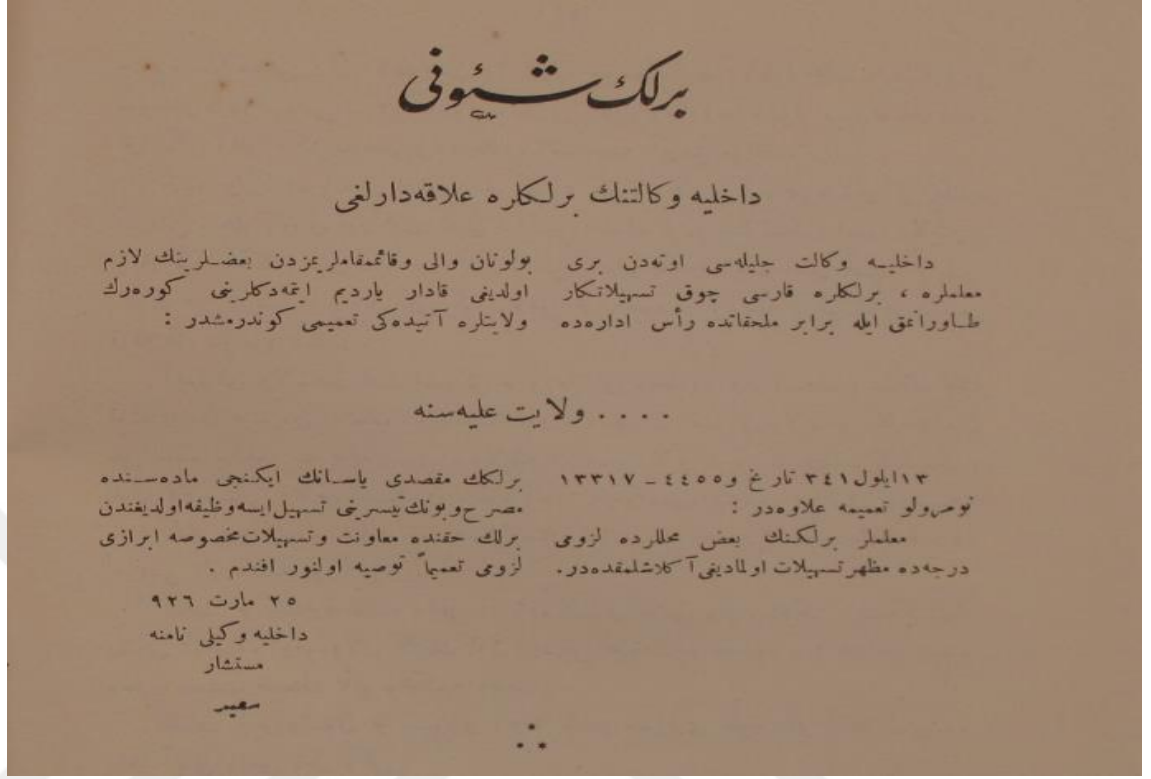 برلك شئونى
داخليه وكالتنك برلكلره علاقه‌دارلغى
داخليـه وكالت جليله‌سى اوته‌دن برى
معلملره ، برلكلره قارسى چوق تسهيلاتكار
طـاورانمق ايله برابر ملحقاتده رأس اداره‌ده
بولونان والى وقائممقاملريمزدن بعضـلرينك لازم
اولدينى قادار ياردیم ايتمه‌دكلرينى كوره‌رك
ولايتلره آتيده‌كى تعميمى كوندرمشدر :
. . . . ولايت عليه‌سنه
١٣ ايلول ٣٤١ تاريخ و ٤٤٥٥ ـ ١٣٣١٧
نومرولو تعميمه علاوه‌در :
معلملر برلكنك بعض محللرده لزومى
درجه‌ده مظهر تسهيلات اولماديغى آكلاشلمقده‌در .
برلكك مقصدى ياسـانك ايكنجى ماده‌سـنده
مصرح وبونك تيسرينى تسهيل ايسه وظيفه اولديغندن
برلك حقنده معاونت وتسهيلات مخصوصه ابرازى
لزومى تعميماً توصيه اولنور افندم .
٢٥ مارت ٩٢٦
داخليه وكيلى نامنه
مستشار
سعيد